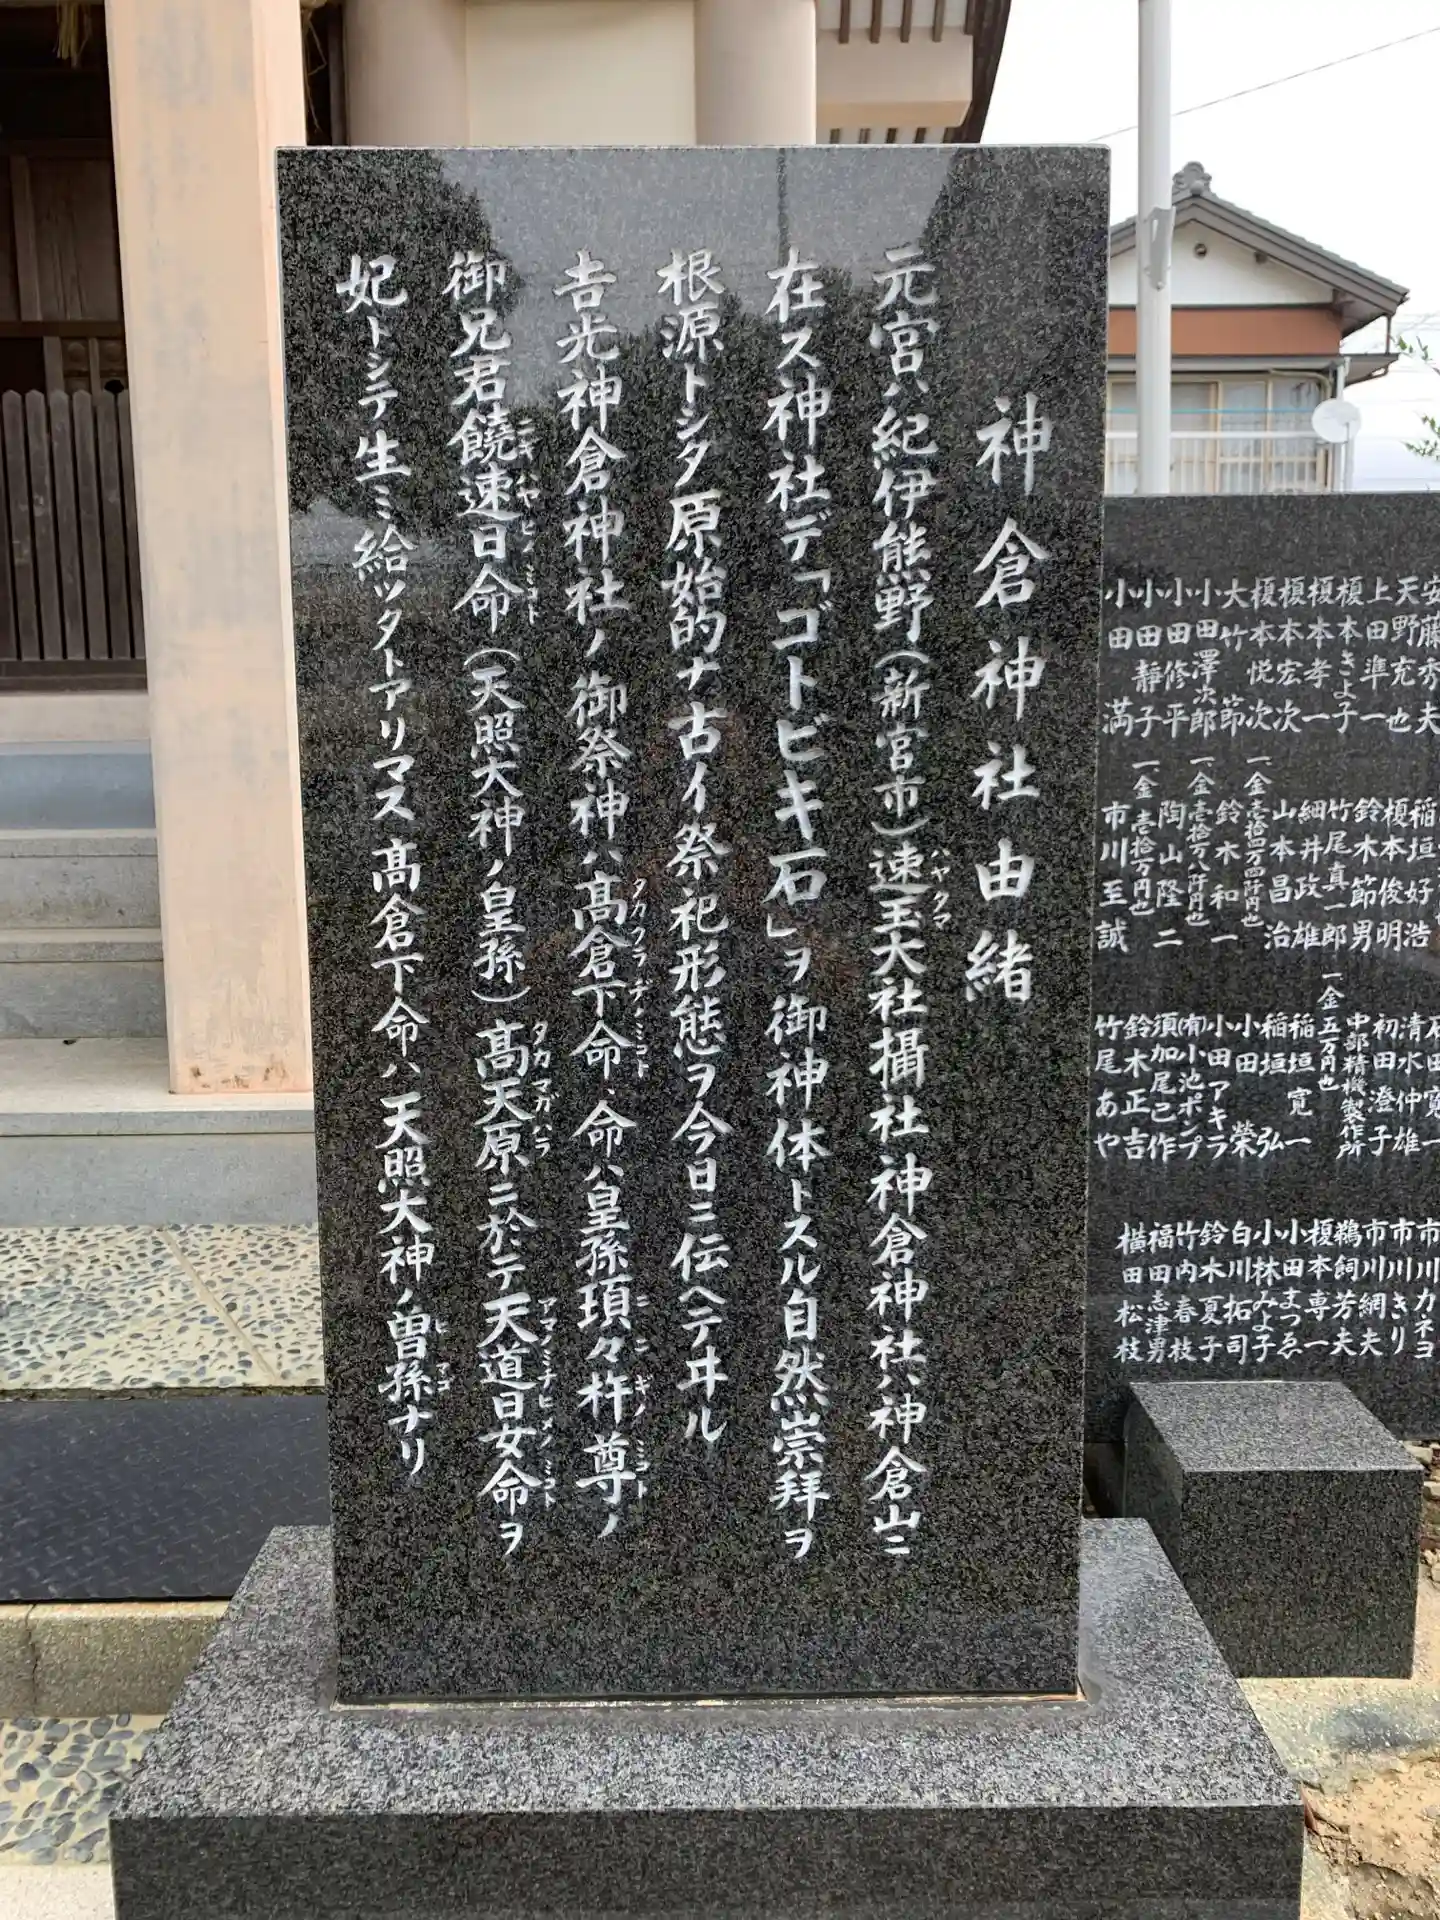 神倉神社由緒
元宮ハ紀伊熊野(新宮市)速玉大社攝社神倉神社ハ神倉山ニ
ハヤタマ
在ス神社デ「ゴトビキ石」ヲ御神体トスル自然崇拝ヲ
根源トシタ原始的ナ古イ祭祀形態ヲ今日ニ伝ヘテヰル
吉光神倉神社ノ御祭神ハ髙倉下命、命ハ皇孫瓊々杵尊ノ
タカクラヂノミコト
ニニギノミコト
御兄君饒速日命(天照大神ノ皇孫)髙天原ニ於テ天道日女命ヲ
ニギハヤヒノミコト
タカマガハラ
アマノミチヒメノミコト
妃トシテ生ミ給ツタトアリマス髙倉下命ハ天照大神ノ曽孫ナリ
ヒマゴ
安藤秀夫
天野充也
上田準一
榎本きよ子
榎本孝一
榎本宏次
榎本悦次
大竹節
小田澤次郎
小田修平
小田静子
小田満
稲垣好浩
榎本俊明
鈴木節男
竹尾真一郎
細井政雄
山本昌治
一、金壱拾四万四阡円也
鈴木和一
一、金壱拾万八阡円也
陶山隆二
一、金壱拾万円也
市川至誠
石田寛一
清水仲雄
初田澄子
中部精機製作所
一、金五万円也
稲垣寛一
稲垣弘
小田榮
小田アキラ
(有)小池ポンプ
須加尾己作
鈴木正吉
竹尾あや
市川カネヨ
市川きり
市川綱夫
鵜飼芳夫
榎本専一
小田まつゑ
小林みよ子
白川拓司
鈴木夏子
竹内春枝
福田志津男
横田松枝